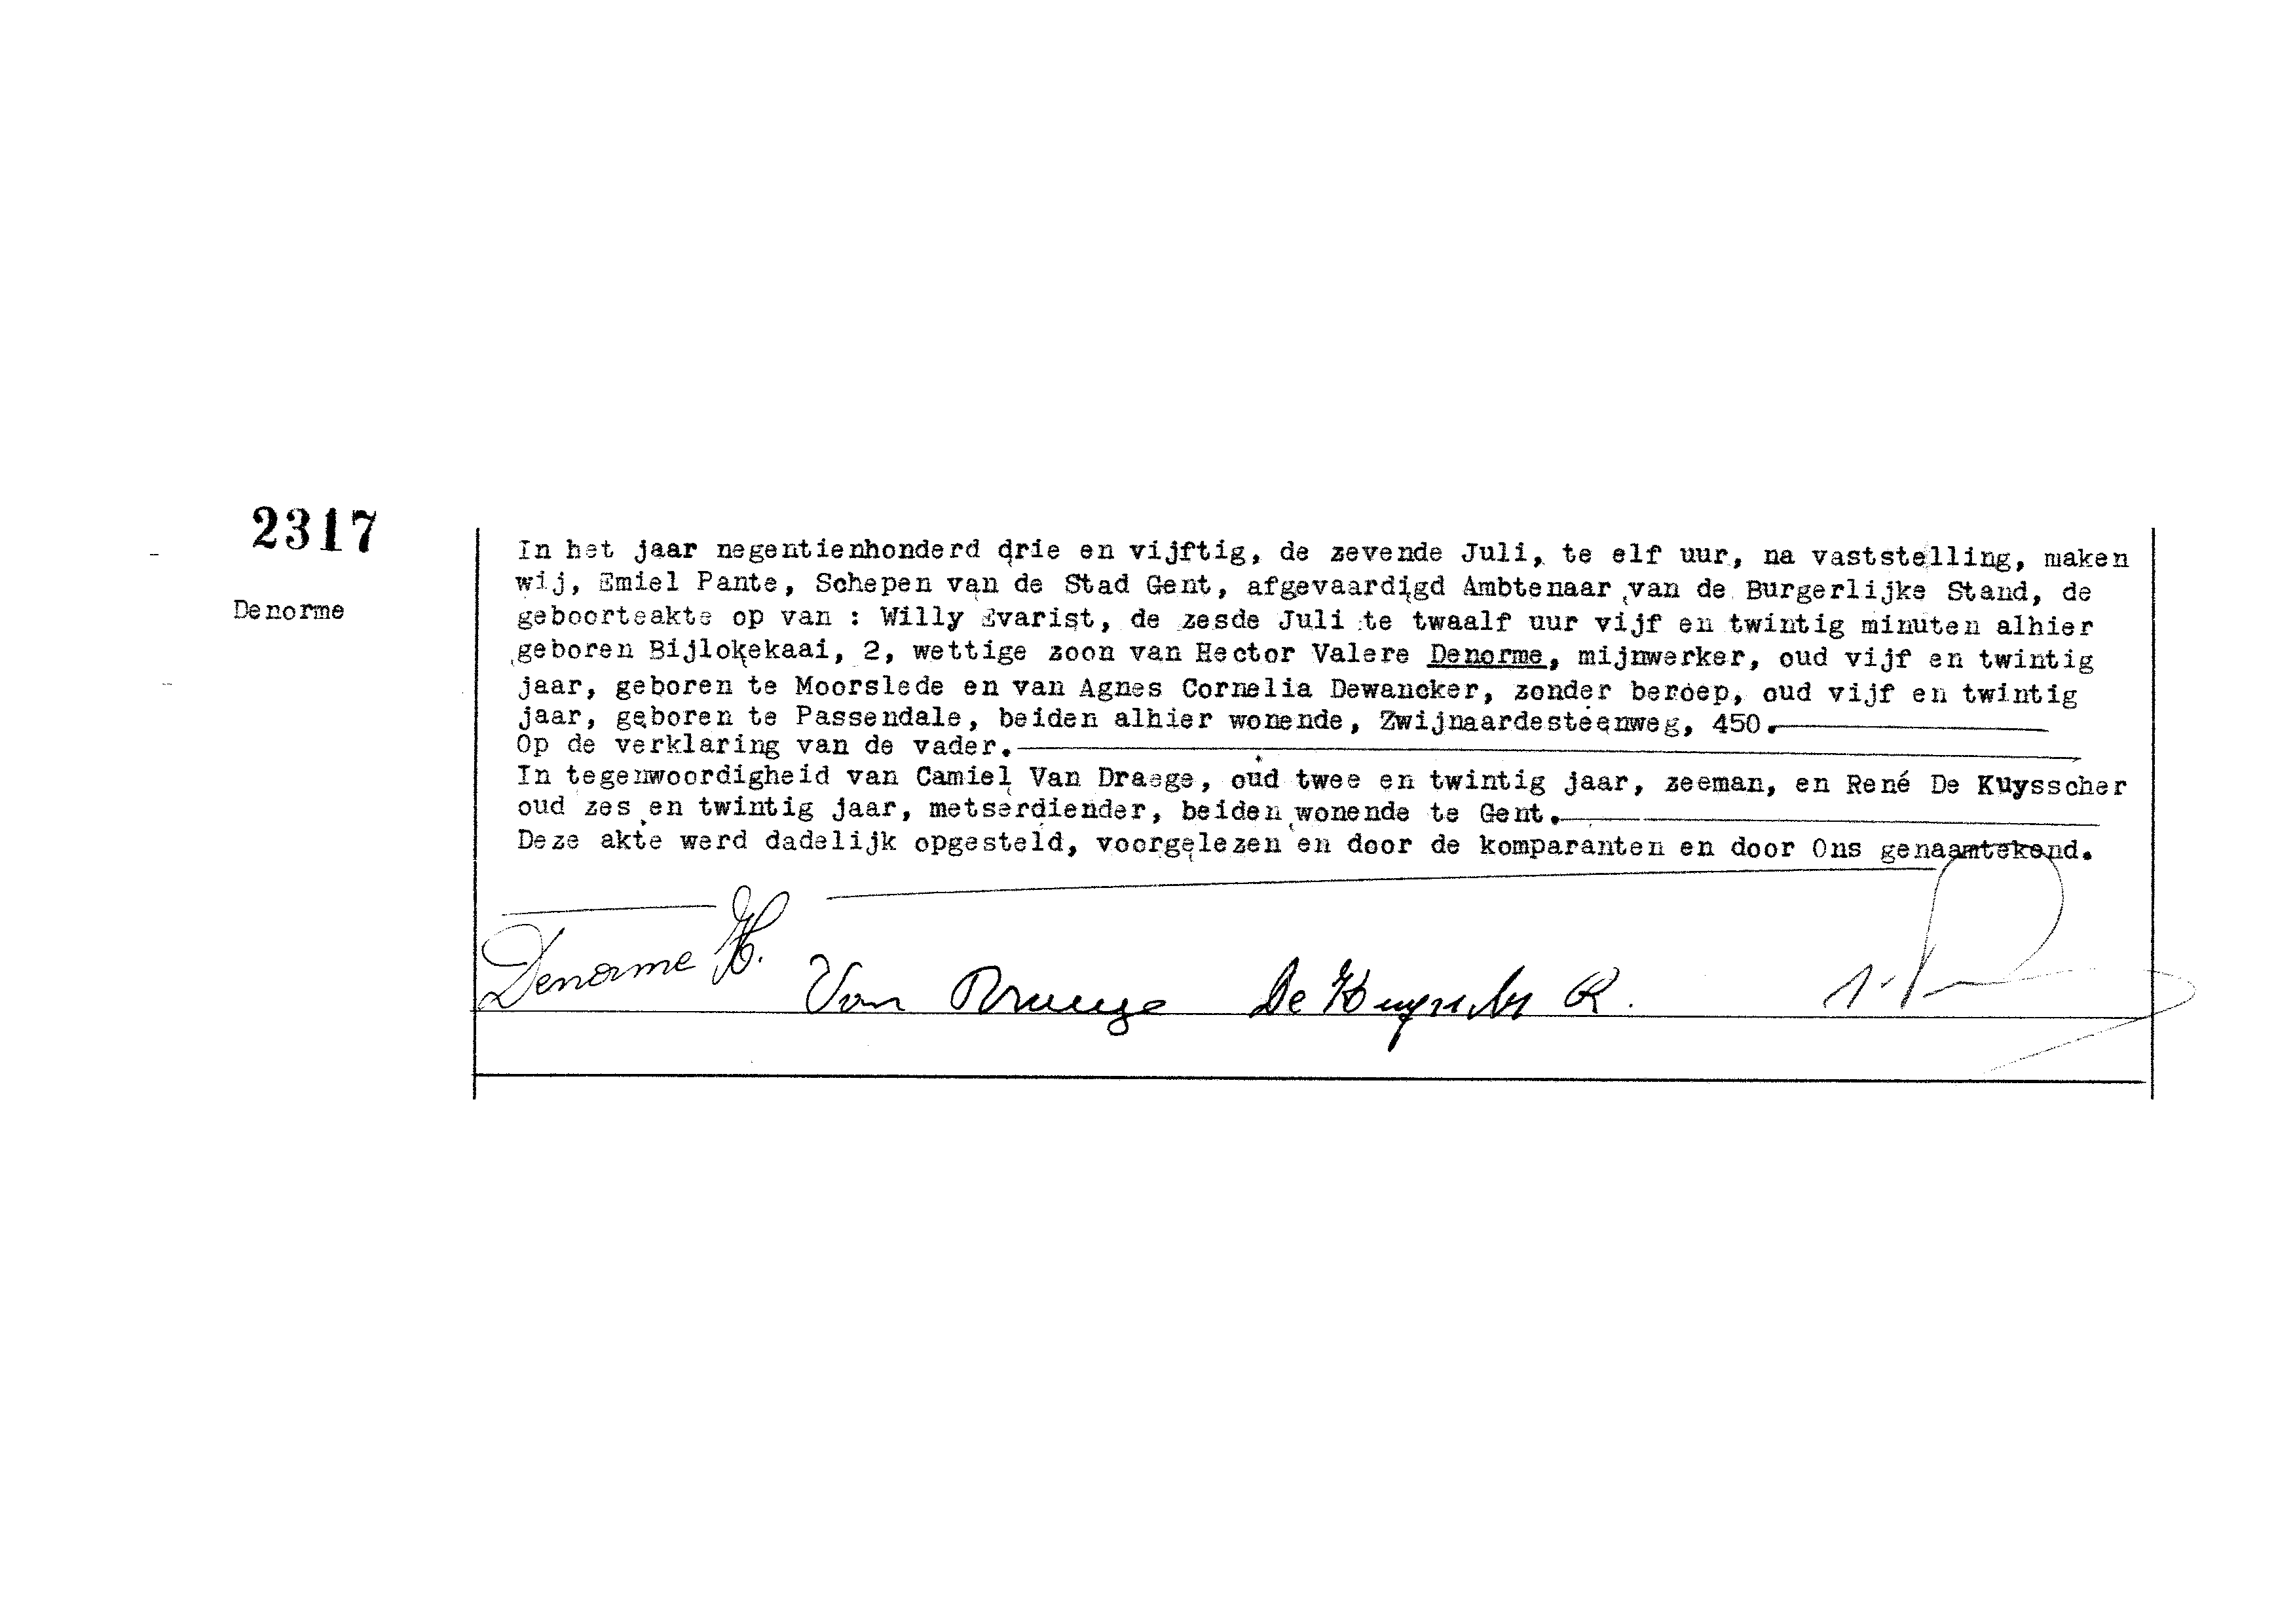 2317
Denorme
In het jaar negentienhonderd drie en vijftig, de zevende Juli, te elf uur, na vaststelling, maken
wij, Emiel Pante, Schepen van de Stad Gent, afgevaardigd Ambtenaar van de Burgerlijke Stand, de
geboorteakte op van : Willy Evarist, de zesde Juli te twaalf uur vijf en twintig minuten alhier
geboren Bijlokekaai, 2, wettige zoon van Hector Valere Denorme, mijnwerker, oud vijf en twintig
jaar, geboren te Moorslede en van Agnes Cornelia Dewancker, zonder beroep, oud vijf en twintig
jaar, geboren te Passendale, beiden alhier wonende, Zwijnaardesteenweg, 450.
Op de verklaring van de vader.
In tegenwoordigheid van Camiel Van Draege, oud twee en twintig jaar, zeeman, en René De Kuysscher
oud zes en twintig jaar, metserdiender, beiden wonende te Gent.
Deze akte werd dadelijk opgesteld, voorgelezen en door de komparanten en door Ons genaamtekend.
Denorme H. Van Draege De Kuysscher R.